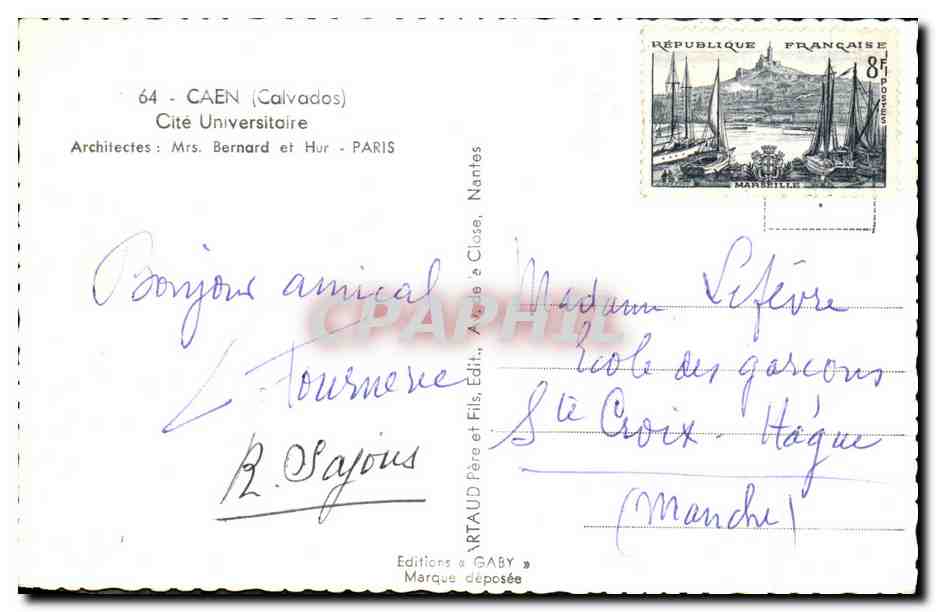 64 - CAEN (Calvados)
Cité Universitaire
Architectes : Mrs. Bernard et Hur - PARIS
Bonjour amical
L Fournerie
R. Sajous
Editions « GABY »
Marque déposée
ARTAUD Père et Fils, Edit., Av. de la Close, Nantes
RÉPUBLIQUE FRANÇAISE
8F
POSTES
MARSEILLE
Madame Lefèvre
Ecole des garçons
Ste Croix - Hague
(Manche)
CPAPHIL